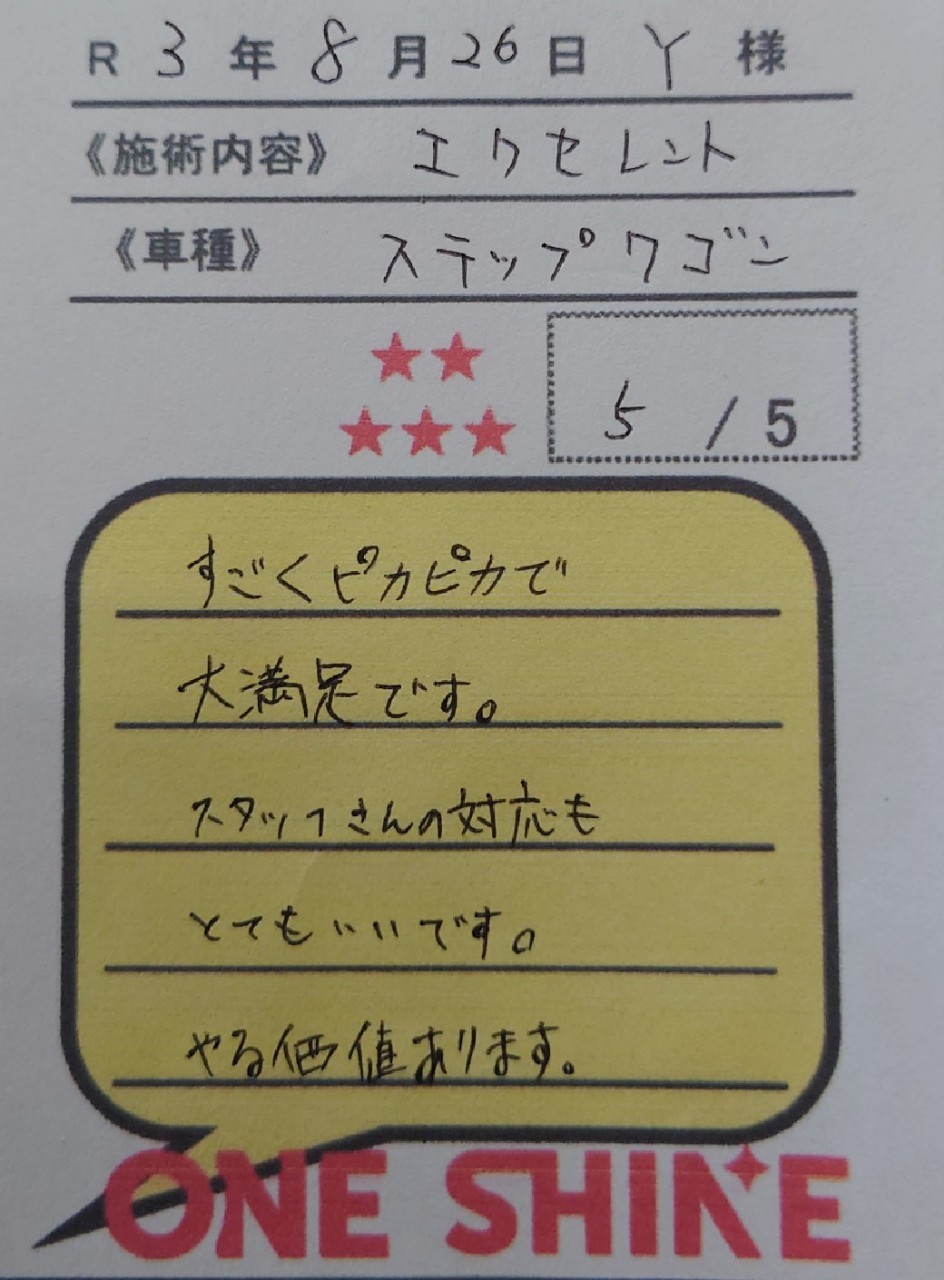 R 3 年 8 月 26 日 Y 様
《施術内容》 エクセレント
《車種》 ステップワゴン
5 / 5
すごくピカピカで
大満足です。
スタッフさんの対応も
とてもいいです。
やる価値あります。
ONE SHINE